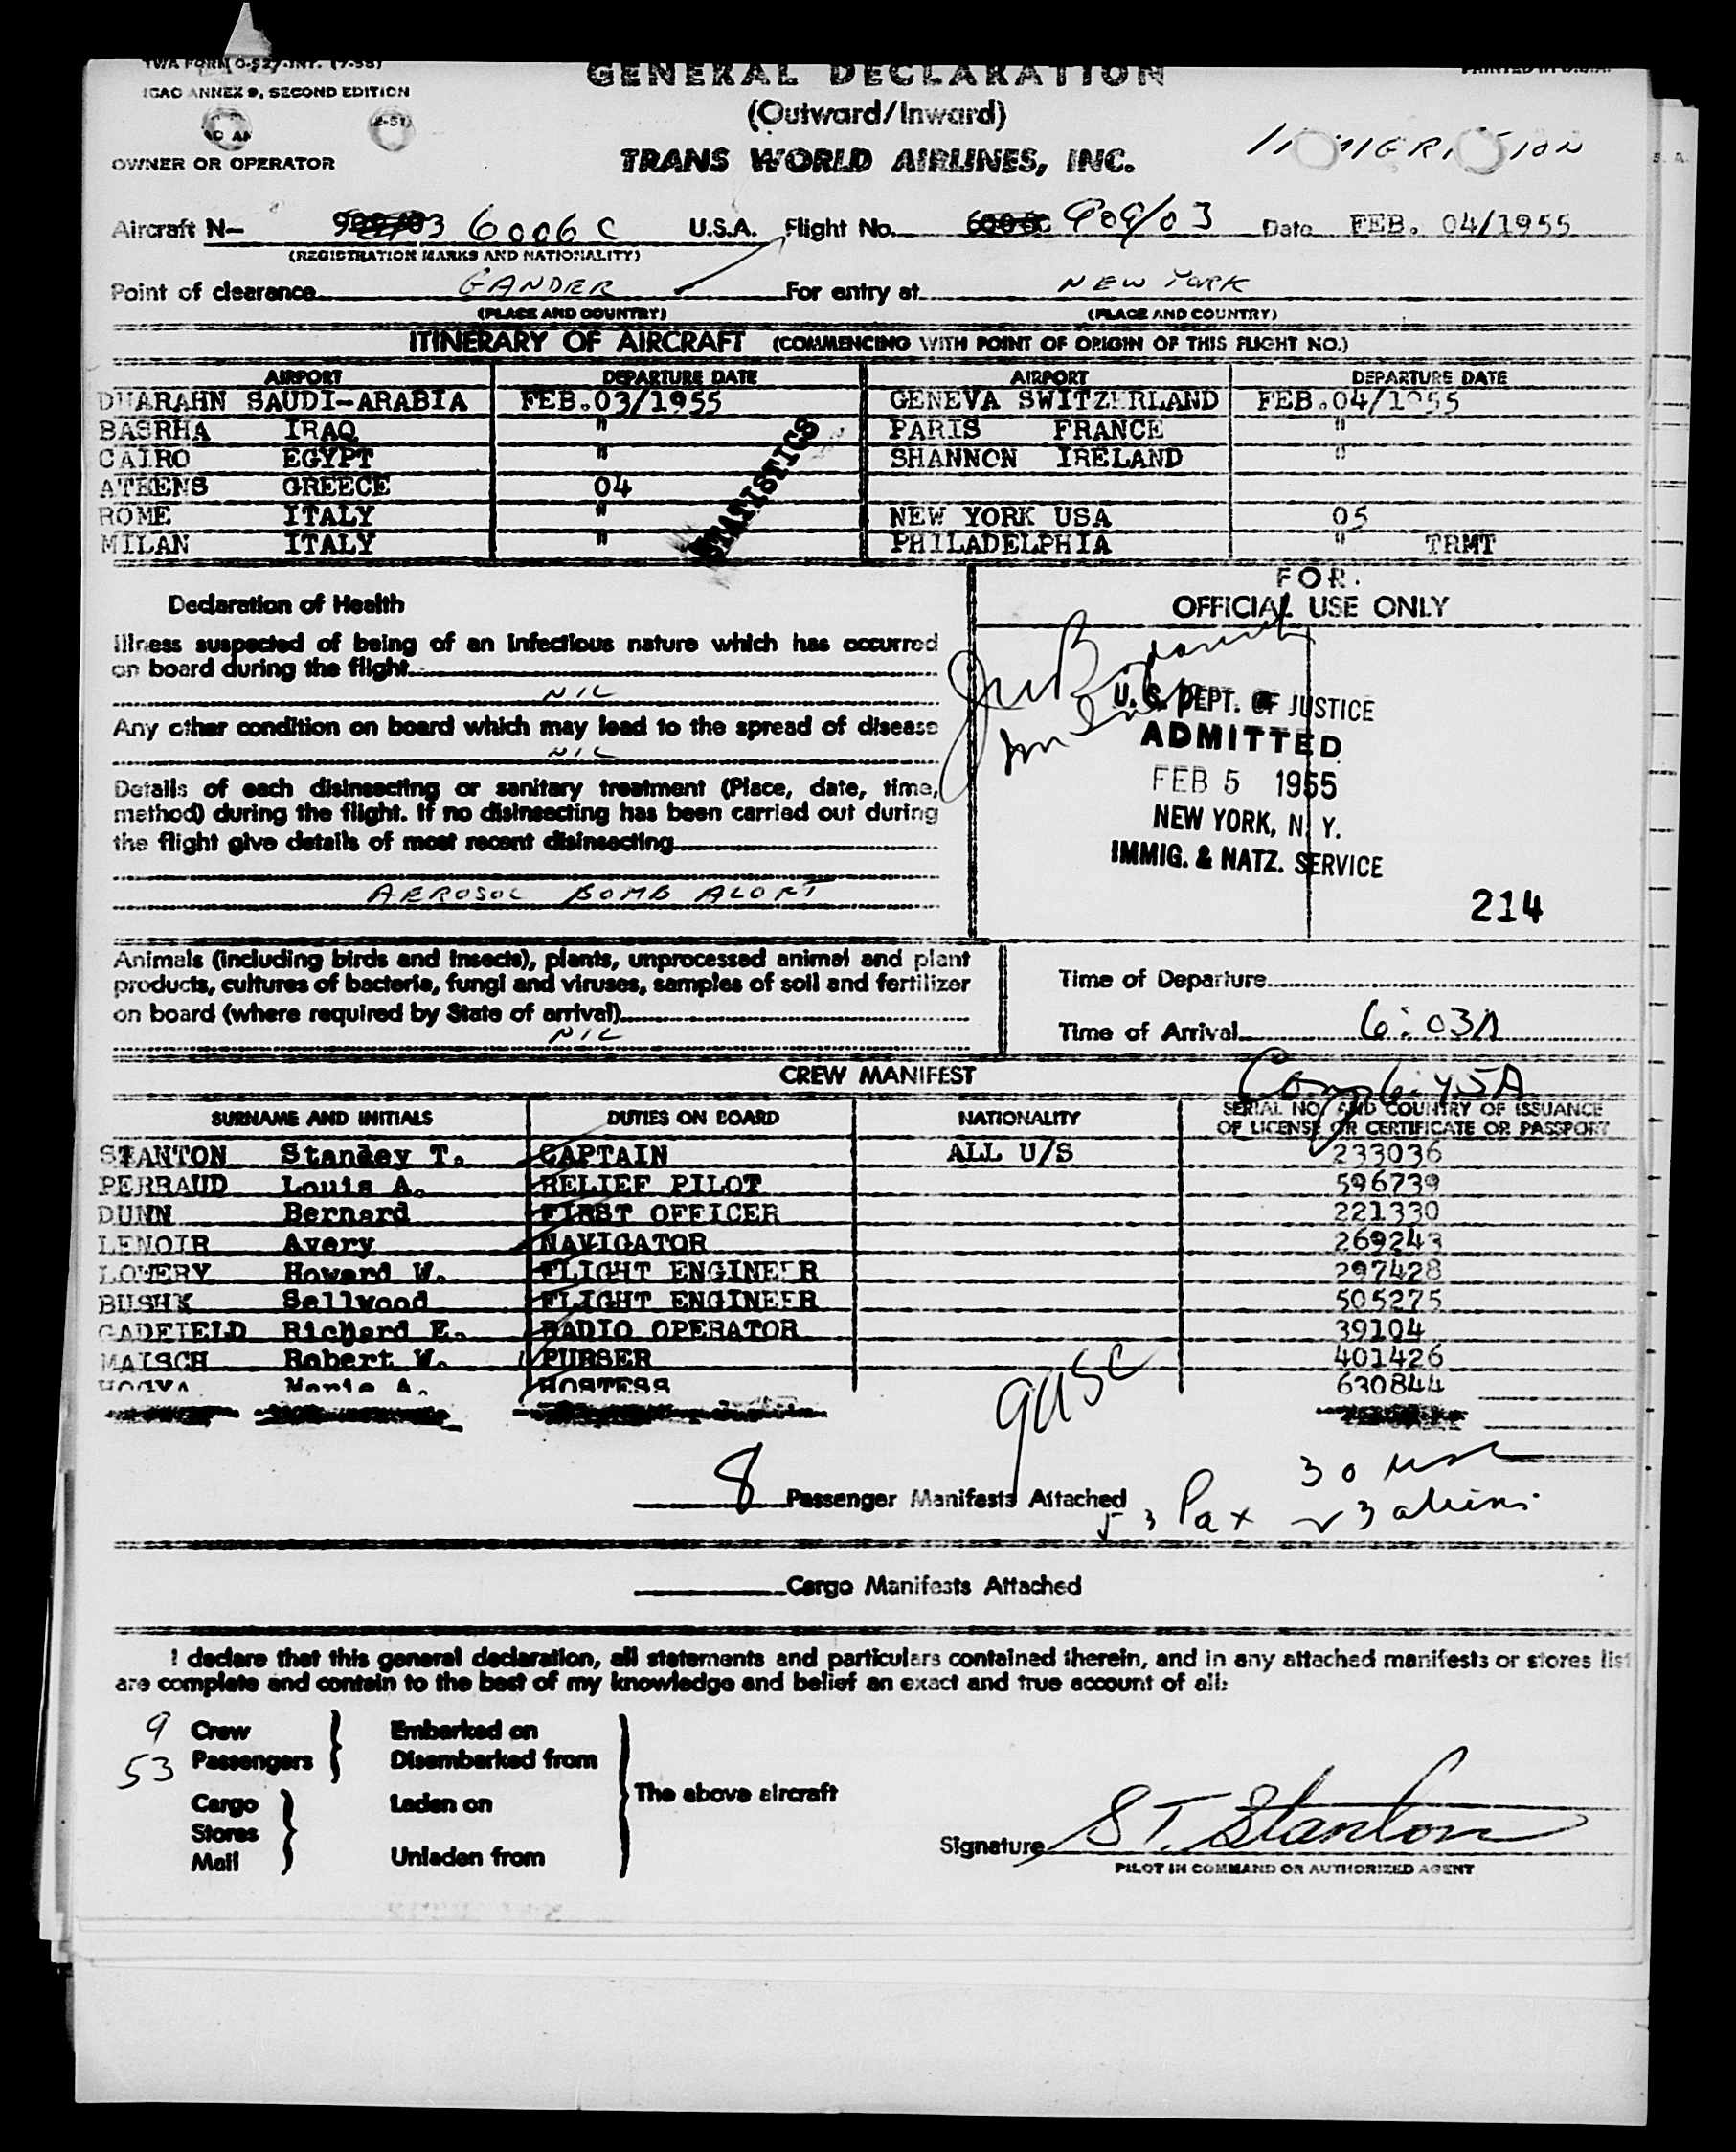 TWA FORM O-527-INT. (7-53)
ICAO ANNEX 9, SECOND EDITION
GENERAL DECLARATION
(Outward/Inward)
TRANS WORLD AIRLINES, INC.
OWNER OR OPERATOR
Aircraft N- 6006 C U.S.A. Flight No. 909/03 Date FEB. 04/1955
(REGISTRATION MARKS AND NATIONALITY)
Point of clearance GANDER For entry at NEW YORK
(PLACE AND COUNTRY) (PLACE AND COUNTRY)
ITINERARY OF AIRCRAFT (COMMENCING WITH POINT OF ORIGIN OF THIS FLIGHT NO.)
AIRPORT DEPARTURE DATE AIRPORT DEPARTURE DATE
DHARAHN SAUDI-ARABIA FEB.03/1955 GENEVA SWITZERLAND FEB.04/1955
BASRHA IRAQ " PARIS FRANCE "
CAIRO EGYPT " SHANNON IRELAND "
ATHENS GREECE 04
ROME ITALY " NEW YORK USA 05
MILAN ITALY " PHILADELPHIA " TRMT
STATISTICS
Declaration of Health
Illness suspected of being of an infectious nature which has occurred
on board during the flight
NIL
Any other condition on board which may lead to the spread of disease
NIL
Details of each disinsecting or sanitary treatment (Place, date, time,
method) during the flight. If no disinsecting has been carried out during
the flight give details of most recent disinsecting
AEROSOL BOMB ALOFT
FOR
OFFICIAL USE ONLY
U. S. DEPT. OF JUSTICE
ADMITTED
FEB 5 1955
NEW YORK, N. Y.
IMMIG. & NATZ. SERVICE
214
Animals (including birds and insects), plants, unprocessed animal and plant
products, cultures of bacteria, fungi and viruses, samples of soil and fertilizer
on board (where required by State of arrival)
NIL
Time of Departure
Time of Arrival 6:03A
6:45A
CREW MANIFEST
SURNAME AND INITIALS DUTIES ON BOARD NATIONALITY SERIAL NO. AND COUNTRY OF ISSUANCE
OF LICENSE OR CERTIFICATE OR PASSPORT
STANTON Stanley T. CAPTAIN ALL U/S 233036
PERRAUD Louis A. RELIEF PILOT 596739
DUNN Bernard FIRST OFFICER 221330
LENOIR Avery NAVIGATOR 269243
LOWERY Howard W. FLIGHT ENGINEER 297428
BUSHK Sellwood FLIGHT ENGINEER 505275
CADFIELD Richard E. RADIO OPERATOR 39104
MAISCH Robert W. PURSER 401426
A. HOSTESS 630844
9 USC
8 Passenger Manifests Attached
53 Pax 30 USC
23 aliens
Cargo Manifests Attached
I declare that this general declaration, all statements and particulars contained therein, and in any attached manifests or stores list
are complete and contain to the best of my knowledge and belief an exact and true account of all:
9 Crew Embarked on
53 Passengers Disembarked from
The above aircraft
Cargo Laden on
Stores
Mail Unladen from
Signature S T. Stanton
PILOT IN COMMAND OR AUTHORIZED AGENT